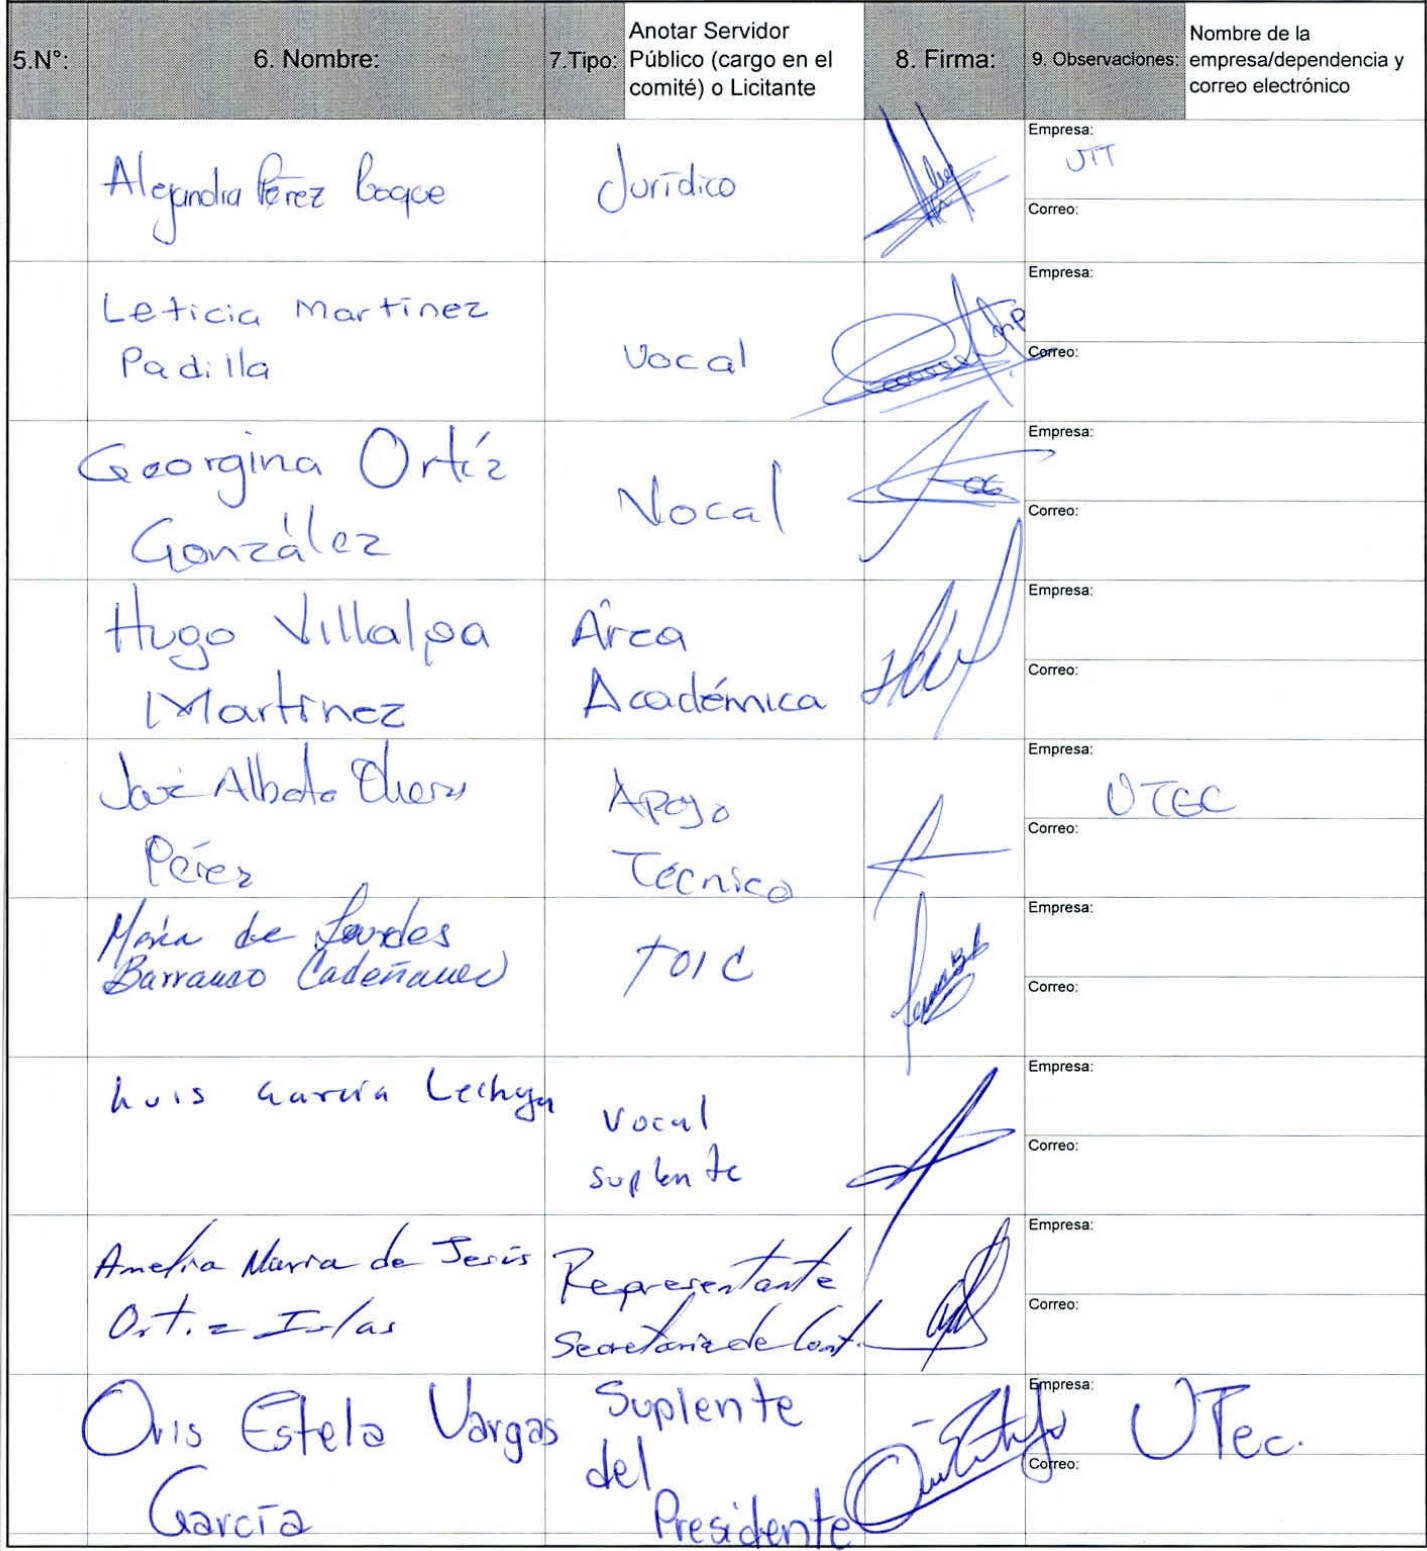 5.N°:
6. Nombre:
7.Tipo:
Anotar Servidor
Público (cargo en el
comité) o Licitante
8. Firma:
9. Observaciones:
Nombre de la
empresa/dependencia y
correo electrónico
Alejandra Pérez
Jurídico
Empresa:
Correo:
Leticia Martínez
Padilla
Vocal
Empresa:
Correo:
Georgina Ortíz
González
Vocal
Empresa:
Correo:
Hugo Villalpa
Martínez
Área
Académica
Empresa:
Correo:
José Alberto
Pérez
Apoyo
Técnico
Empresa:
UTGC
Correo:
María de Lourdes
Barranco
TOIC
Empresa:
Correo:
Luis García Lechuga
Vocal
suplente
Empresa:
Correo:
Amelia María de Jesús
Ortiz Islas
Representante
Secretaría de Cont.
Empresa:
Correo:
Oris Estela Vargas
García
Suplente
del
Presidente
Empresa:
UTec.
Correo: